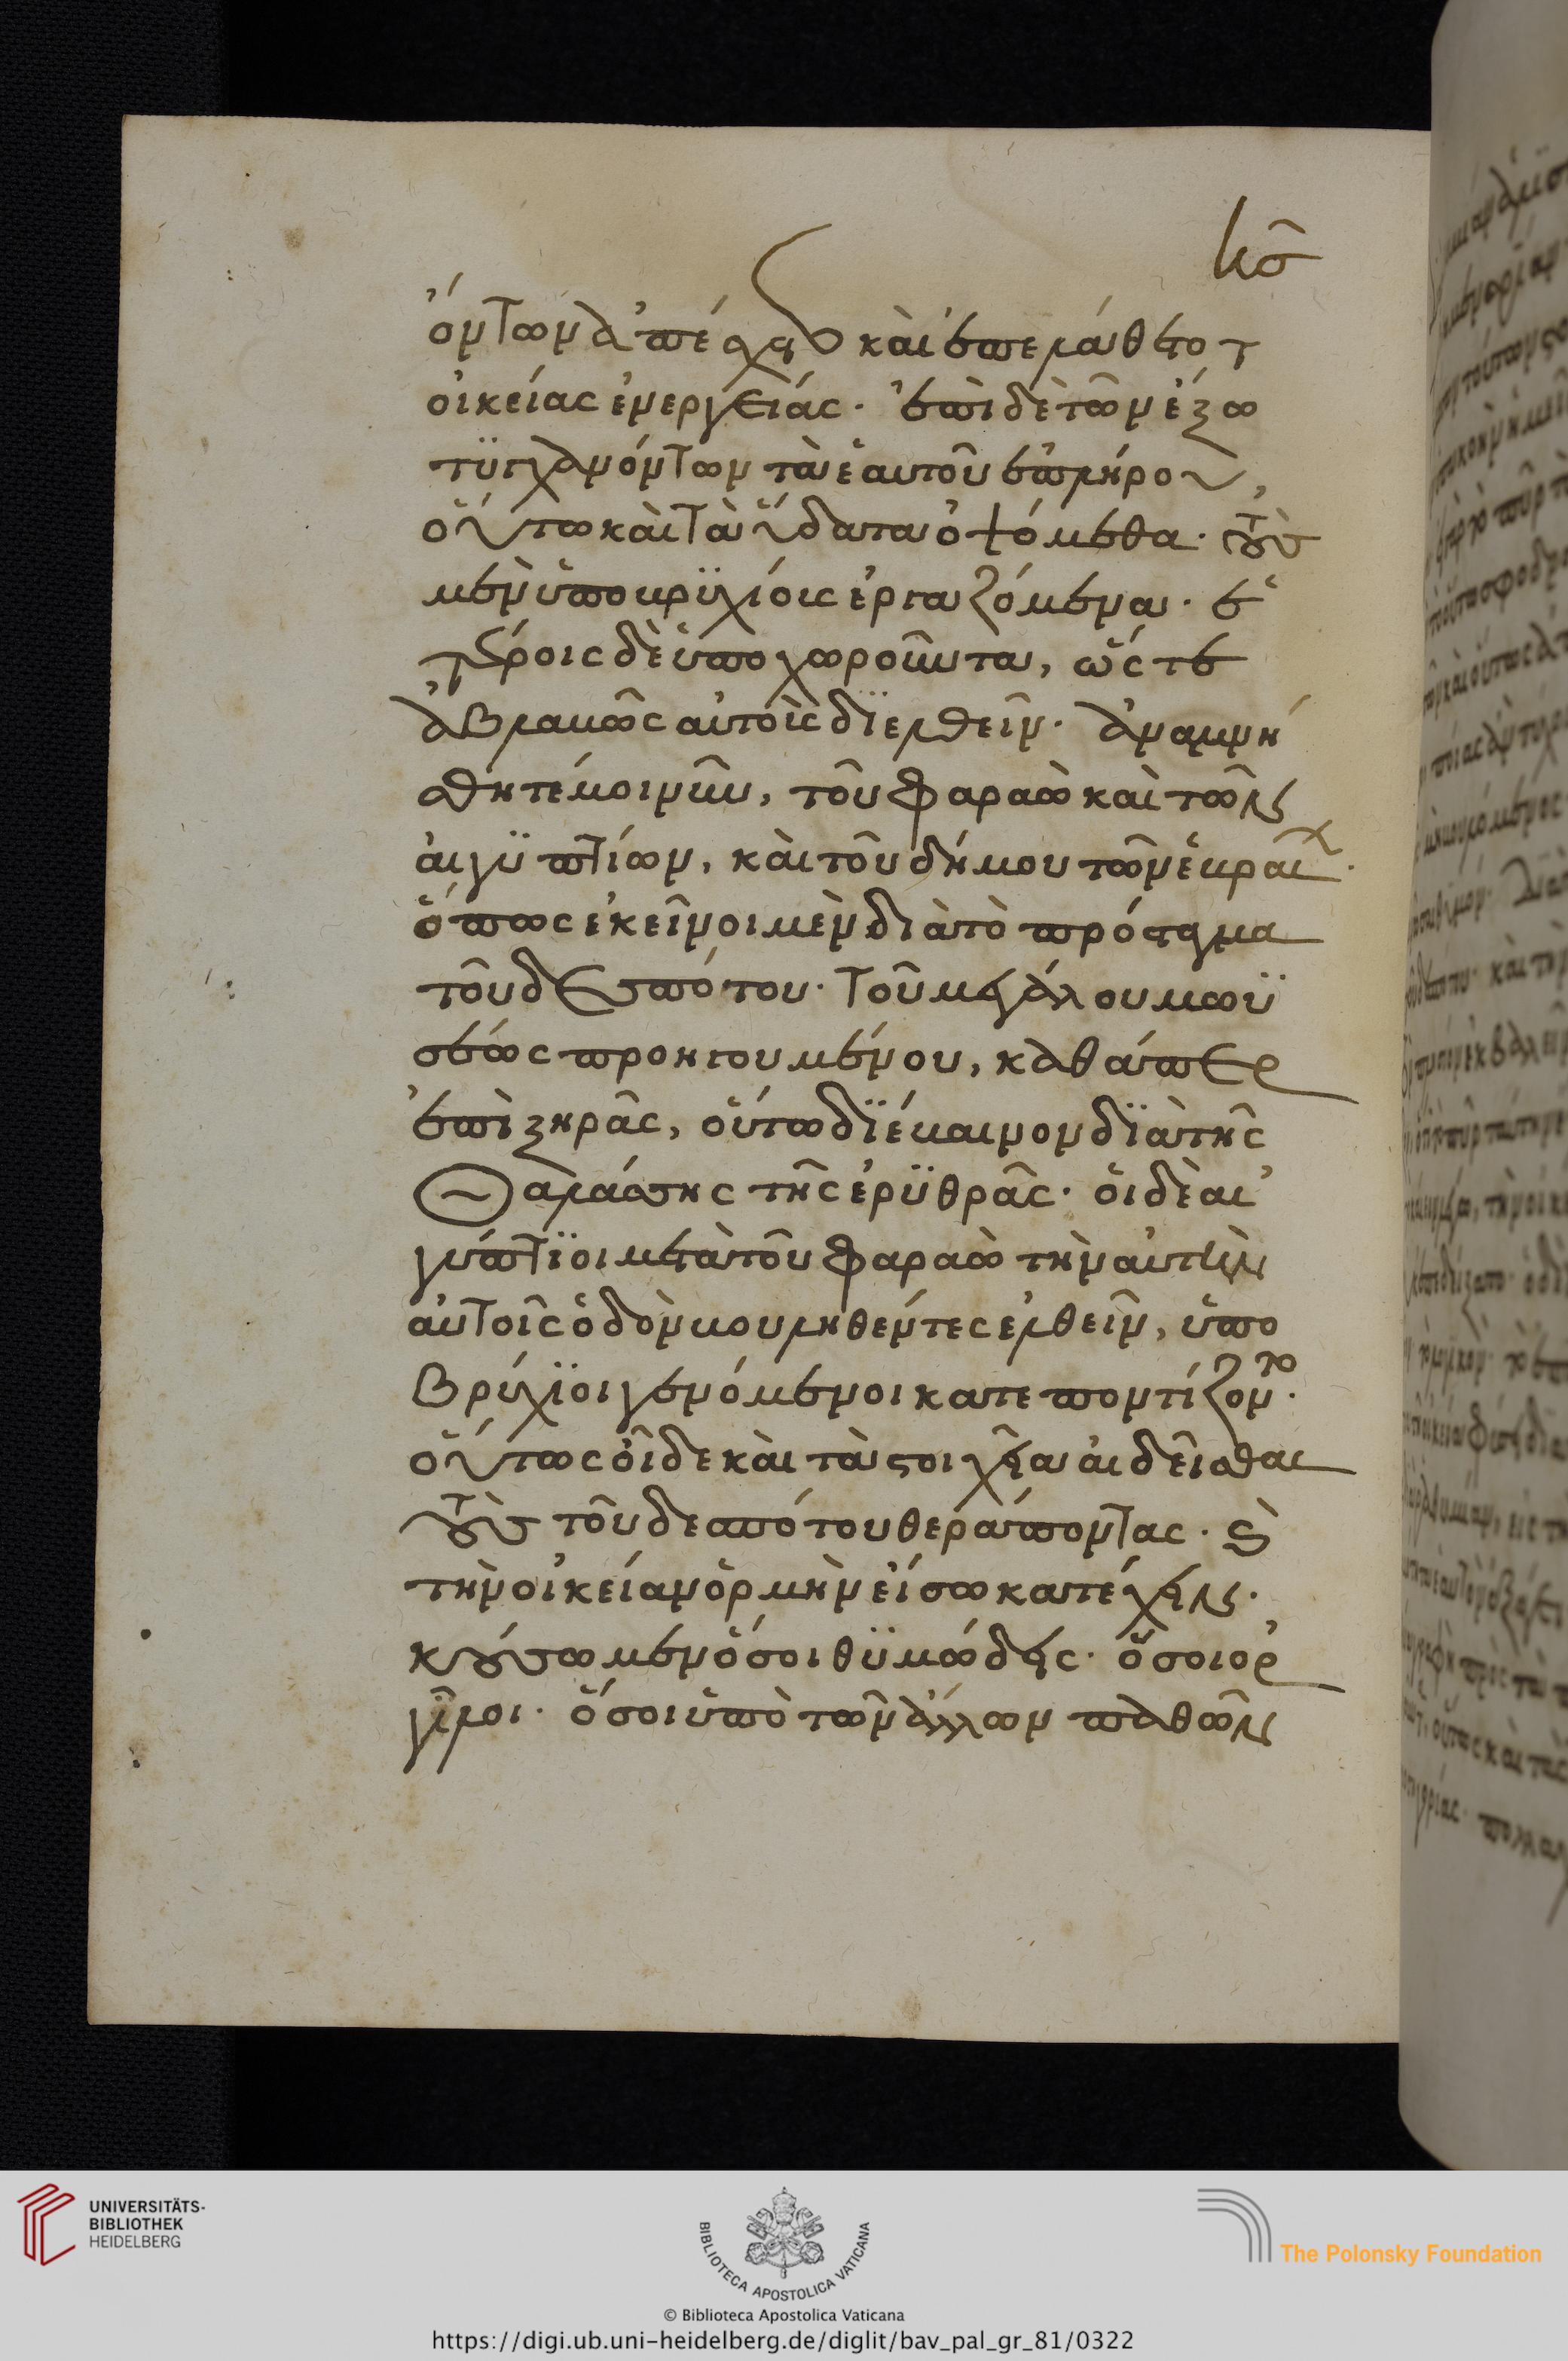 κσ
ὄντων ἀπέσχετο καὶ ἐπελάθετο τ
οἰκείας ἐνεργείας· ἐπὶ δὲ τῶν ἔξω
τϋγχανόντων τὰ ἑαυτοῦ ἐπλήρου,
οὕτω καὶ τὰ ὕδατα ὀψόμεθα· τοὺς
μὲν ὑποβρϋχίοις ἐργαζόμενα· ἑ
τέροις δὲ ὑποχωροῦντα, ὥς τε
ἀβλαβῶς αὐτοῖς δϊελθεῖν· ἀναμνή
σθητέ μοι νῦν, τοῦ φαραὼ καὶ τῶν
αἰγϋπτίων, καὶ τοῦ δήμου τῶν ἑβραί·
ὅπως ἐκεῖνοι μὲν διὰ τὸ πρόσταγμα
τοῦ δεσπότου· τοῦ μεγάλου μωϋ
σέως προηγουμένου, καθάπερ
ἐπὶ ξηρᾶς, οὕτω δϊέβαινον δϊὰ τῆς
θαλάσσης τῆς ἐρϋθρᾶς· οἱ δὲ αἰ
γύπτϊοι μετὰ τοῦ φαραὼ τὴν αὐτὴν
αὐτοῖς ὁδὸν βουληθέντες ἐλθεῖν, ὑπο
βρύχϊοι γενόμενοι κατεποντίζοντο·
οὕτως οἶδε καὶ τὰ στοιχεῖα αἰδεῖσθαι
τοὺς τοῦ δεσπότου θεράποντας· καὶ
τὴν οἰκείαν ὁρμὴν εἴσω κατέχειν·
κούσωμεν ὅσοι θϋμώδεις· ὅσοι ὀρ
γίλοι· ὅσοι ὑπὸ τῶν ἄλλων παθῶν
UNIVERSITÄTS-
BIBLIOTHEK
HEIDELBERG
BIBLIOTECA APOSTOLICA VATICANA
The Polonsky Foundation
© Biblioteca Apostolica Vaticana
https://digi.ub.uni-heidelberg.de/diglit/bav_pal_gr_81/0322